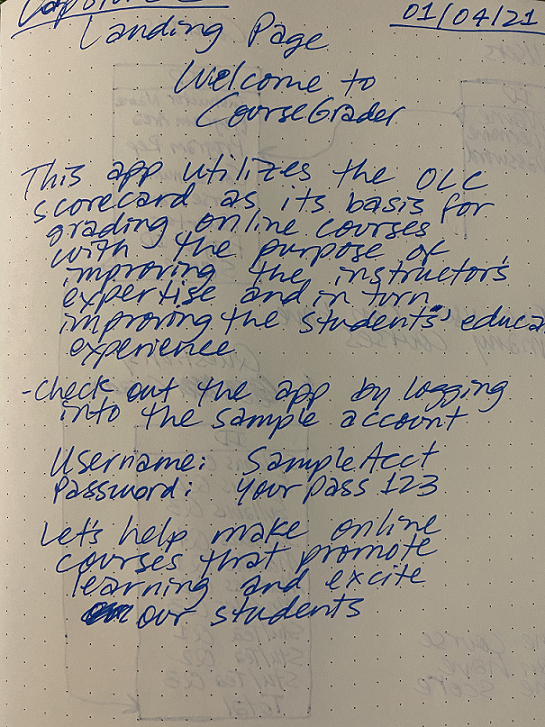 01/04/21
Landing Page
Welcome to
CourseGrader
This app utilizes the OLC
scorecard as its basis for
grading online courses
with the purpose of
improving the instructor's
expertise and in turn
improving the students' educa
experience
-Check out the app by logging
into the sample account
Username: SampleAcct
Password: YourPass123
Let's help make online
courses that promote
learning and excite
our students